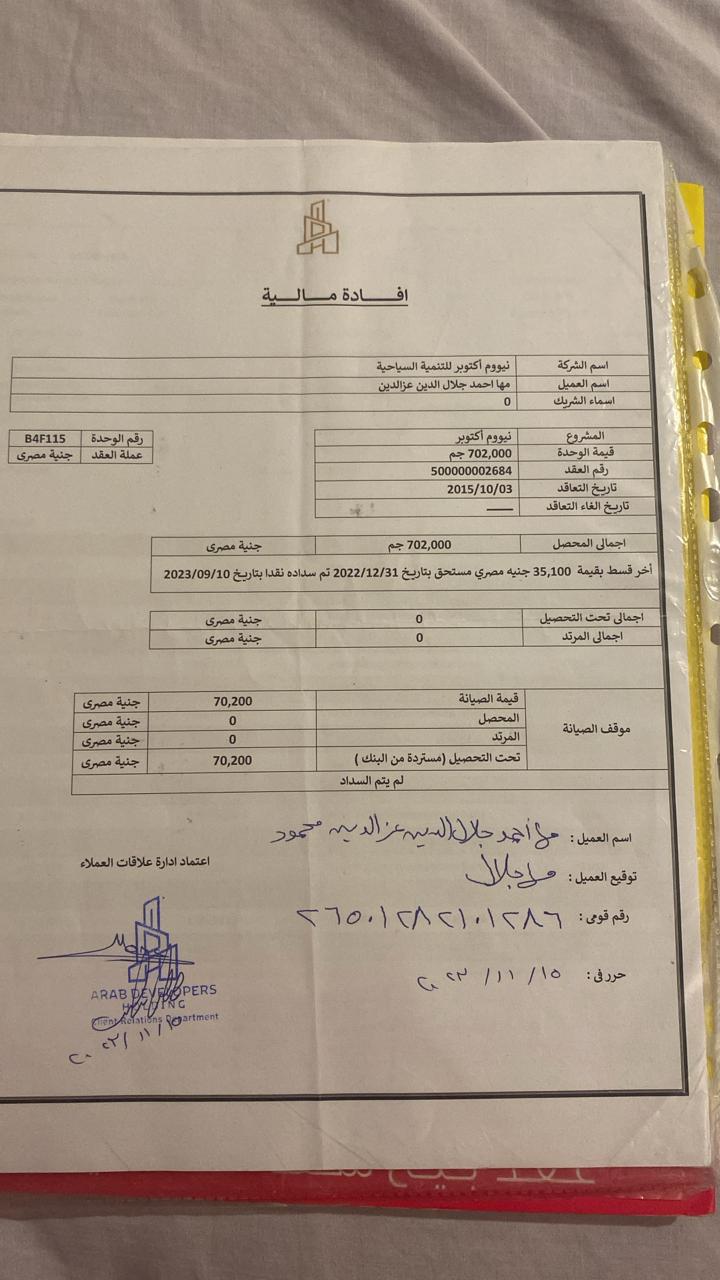 افادة مالية
اسم الشركة نيووم أكتوبر للتنمية السياحية
اسم العميل مها احمد جلال الدين عزالدين
اسماء الشريك 0
المشروع نيووم أكتوبر
رقم الوحدة B4F115
قيمة الوحدة 702,000 جم
عملة العقد جنية مصرى
رقم العقد 500000002684
تاريخ التعاقد 2015/10/03
تاريخ الغاء التعاقد
اجمالى المحصل 702,000 جم جنية مصرى
أخر قسط بقيمة 35,100 جنيه مصري مستحق بتاريخ 2022/12/31 تم سداده نقدا بتاريخ 2023/09/10
اجمالى تحت التحصيل 0 جنية مصرى
اجمالى المرتد 0 جنية مصرى
موقف الصيانة
قيمة الصيانة 70,200 جنية مصرى
المحصل 0 جنية مصرى
المرتد 0 جنية مصرى
تحت التحصيل (مستردة من البنك ) 70,200 جنية مصرى
لم يتم السداد
اسم العميل : مها أحمد جلال الدين عز الدين محمود
اعتماد ادارة علاقات العملاء
توقيع العميل : مها جلال
رقم قومى : ٢٦٥٠١٢٨٢١٠١٢٨٦
حرر فى : ١٥ / ١١ / ٢٠٢٣
ARAB DEVELOPERS
HOLDING
Client Relations Department
٢٠٢٣/١١/١٥